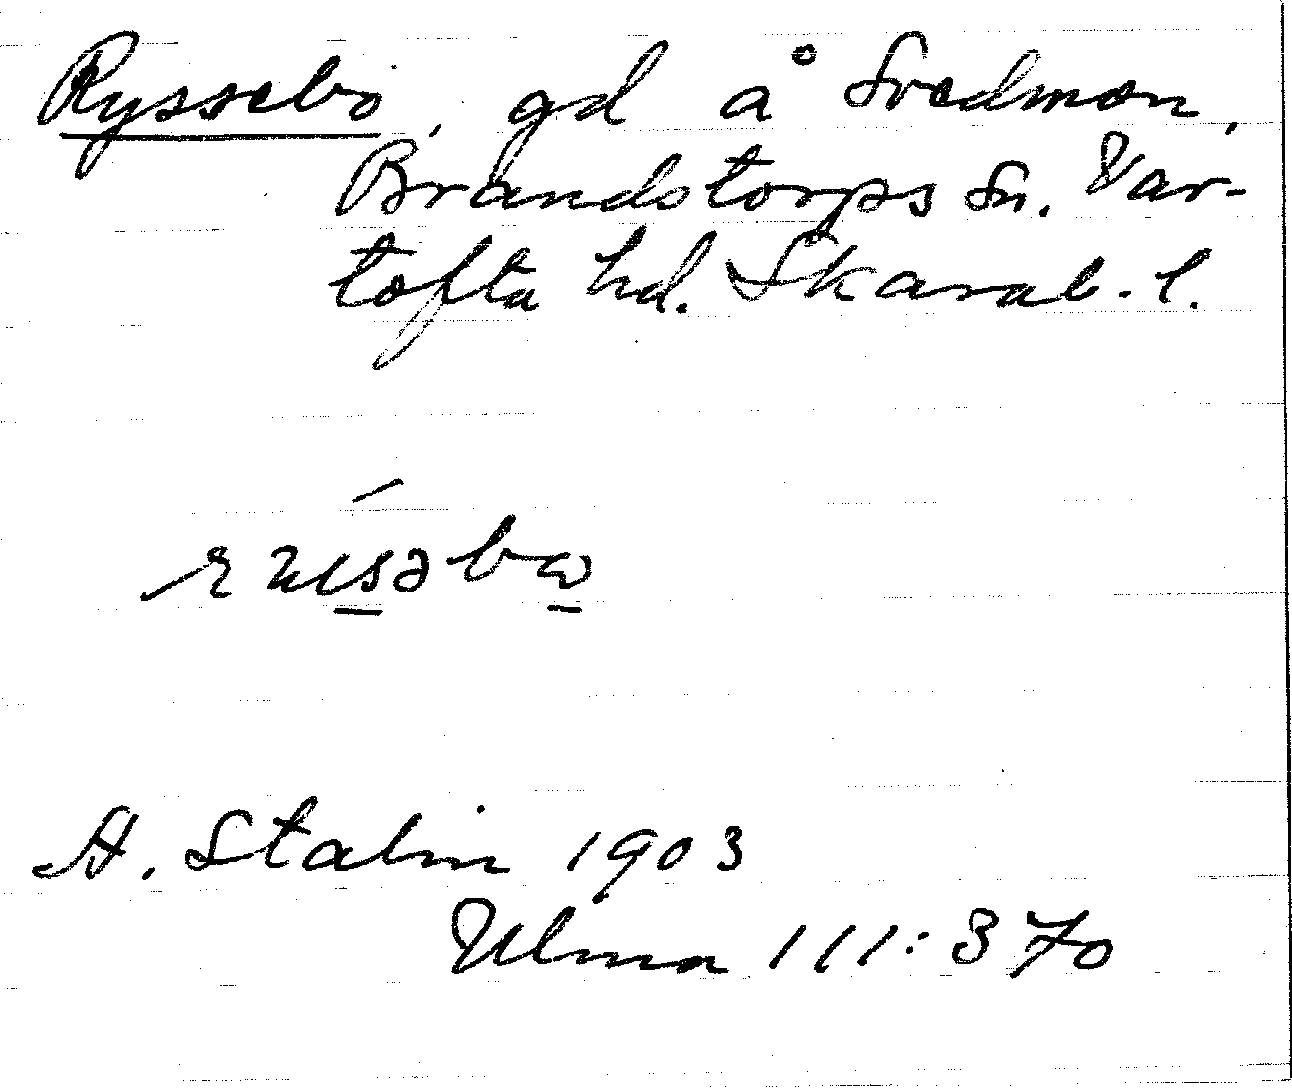 Ryssebo, gd å Svedmon,
Brandstorps sn. Var-
tofta hd. Skarab. l.
A. Stalin 1903
Ulma 111:370